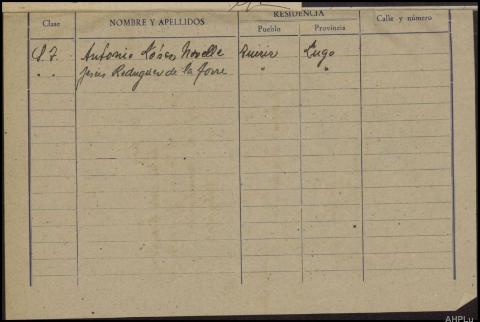 RESIDENCIA
Clase NOMBRE Y APELLIDOS Pueblo Provincia Calle y número
P. F. Antonio López Novelle Guiriz Lugo
" " Jesús Rodríguez de la Torre " "
AHPLu